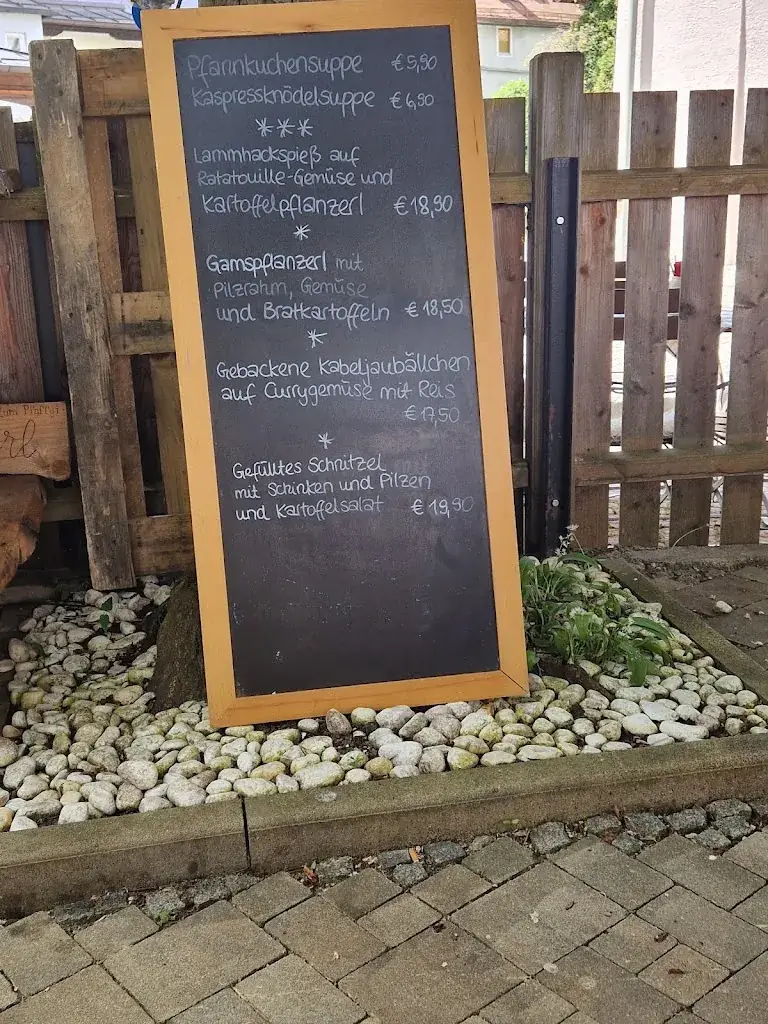 Pfannkuchensuppe €5,90
Kaspressknödelsuppe €6,90
Lammhackspieß auf
Ratatouille-Gemüse und
Kartoffelpflanzerl €18,90
Gamspflanzerl mit
Pilzrahm, Gemüse
und Bratkartoffeln €18,50
Gebackene Kabeljaubällchen
auf Currygemüse mit Reis
€17,50
Gefülltes Schnitzel
mit Schinken und Pilzen
und Kartoffelsalat €19,90